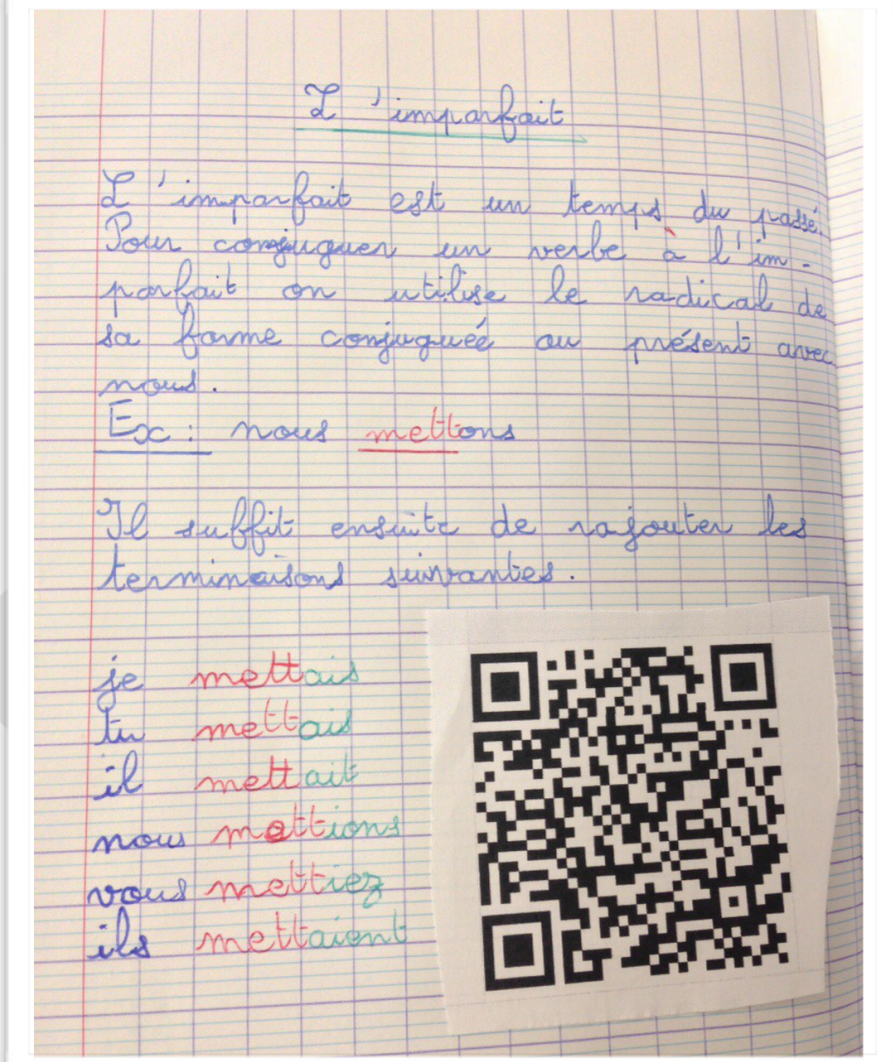 L'imparfait
L'imparfait est un temps du passé.
Pour conjuguer un verbe à l'im-
parfait on utilise le radical de
sa forme conjuguéé au présent avec
nous.
Ex : nous mettons
Il suffit ensuite de rajouter les
terminaisons suivantes.
je mettais
tu mettais
il mettait
nous mettions
vous mettiez
ils mettaient